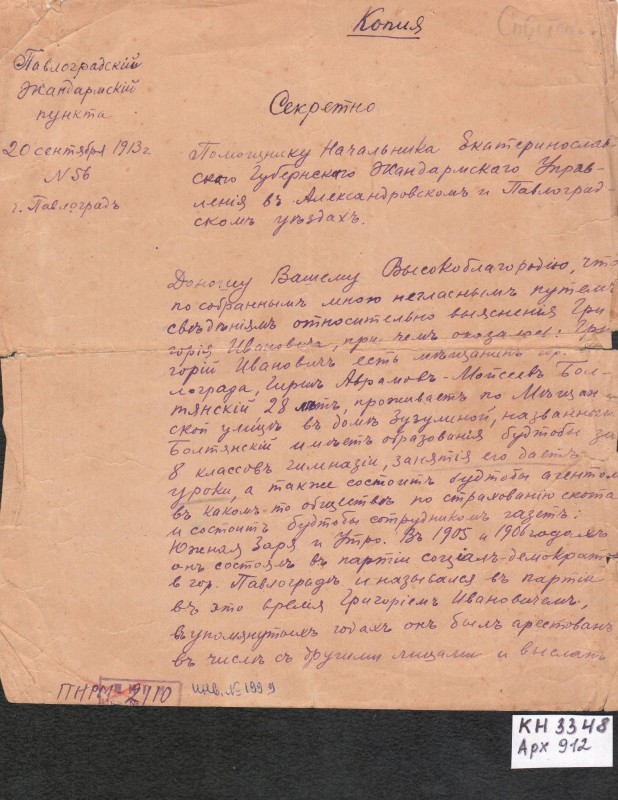 Копия
Павлоградскій
Жандармскій
пункта
20 сентября 1913 г
N 56
г. Павлоградъ
Секретно
Помощнику Начальника Екатеринослав-
скаго Губернскаго Жандармскаго Управ-
ленія въ Александровскомъ и Павлоград-
скомъ уѣздахъ.
Доношу Вашему Высокоблагородію, что
по собраннымъ мною негласнымъ путемъ
свѣдѣніямъ относительно выясненія Гри
горія Ивановича, при чемъ оказалось: Гри
горій Ивановичъ есть мѣщанинъ гор.
лограда, Гиршъ Аврамовъ-Мойсеевъ Бол-
тянскій 28 лѣтъ, проживаетъ по Мѣщан
ской улицѣ въ домѣ Зузулиной, названный
Болтянскій имѣетъ образованія будтобы за
8 классовъ гимназіи, занятія его даетъ
уроки, а также состоитъ будтобы агентом
въ какомъ-то обществѣ по страхованію скота
и состоитъ будтобы сотрудникомъ газетъ:
Южная Заря и Утро. Въ 1905 и 1906 годахъ
онъ состоялъ въ партіи соціалъ-демократ
въ гор. Павлоградѣ и назывался въ партіи
въ это время Григоріемъ Ивановичемъ,
въ упомянутыхъ годахъ онъ былъ арестованъ
въ числѣ съ другими лицами и высланъ
ПНРМ 2410 инв. № 1999
КН 3348
Арх 912